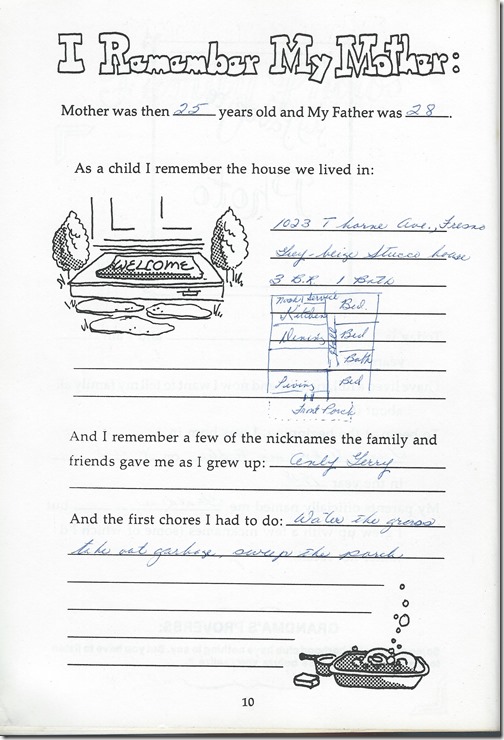 I Remember My Mother:
Mother was then 25 years old and My Father was 28.
As a child I remember the house we lived in:
WELCOME
1023 Thorne Ave., Fresno
Grey-beige Stucco house
3 B.R. 1 Bath
Service Bed.
Kitchen
Dining Hall Bed
Bath
Living Bed
Front Porch
And I remember a few of the nicknames the family and
friends gave me as I grew up: Only Gerry
And the first chores I had to do: Water the grass
take out garbage, sweep the porch
GRANDMA'S PROVERBS:
10